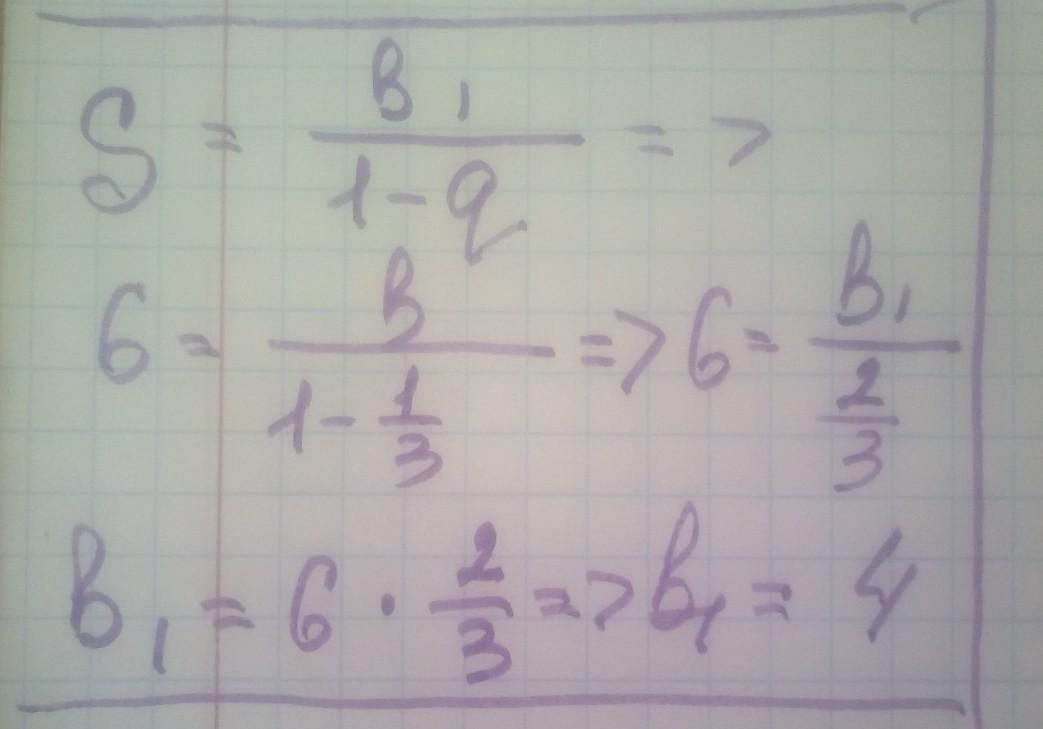 S = B₁/(1-q) =>
6 = B/(1-1/3) => 6 = B₁/(2/3)
B₁ = 6 · 2/3 => B₁ = 4